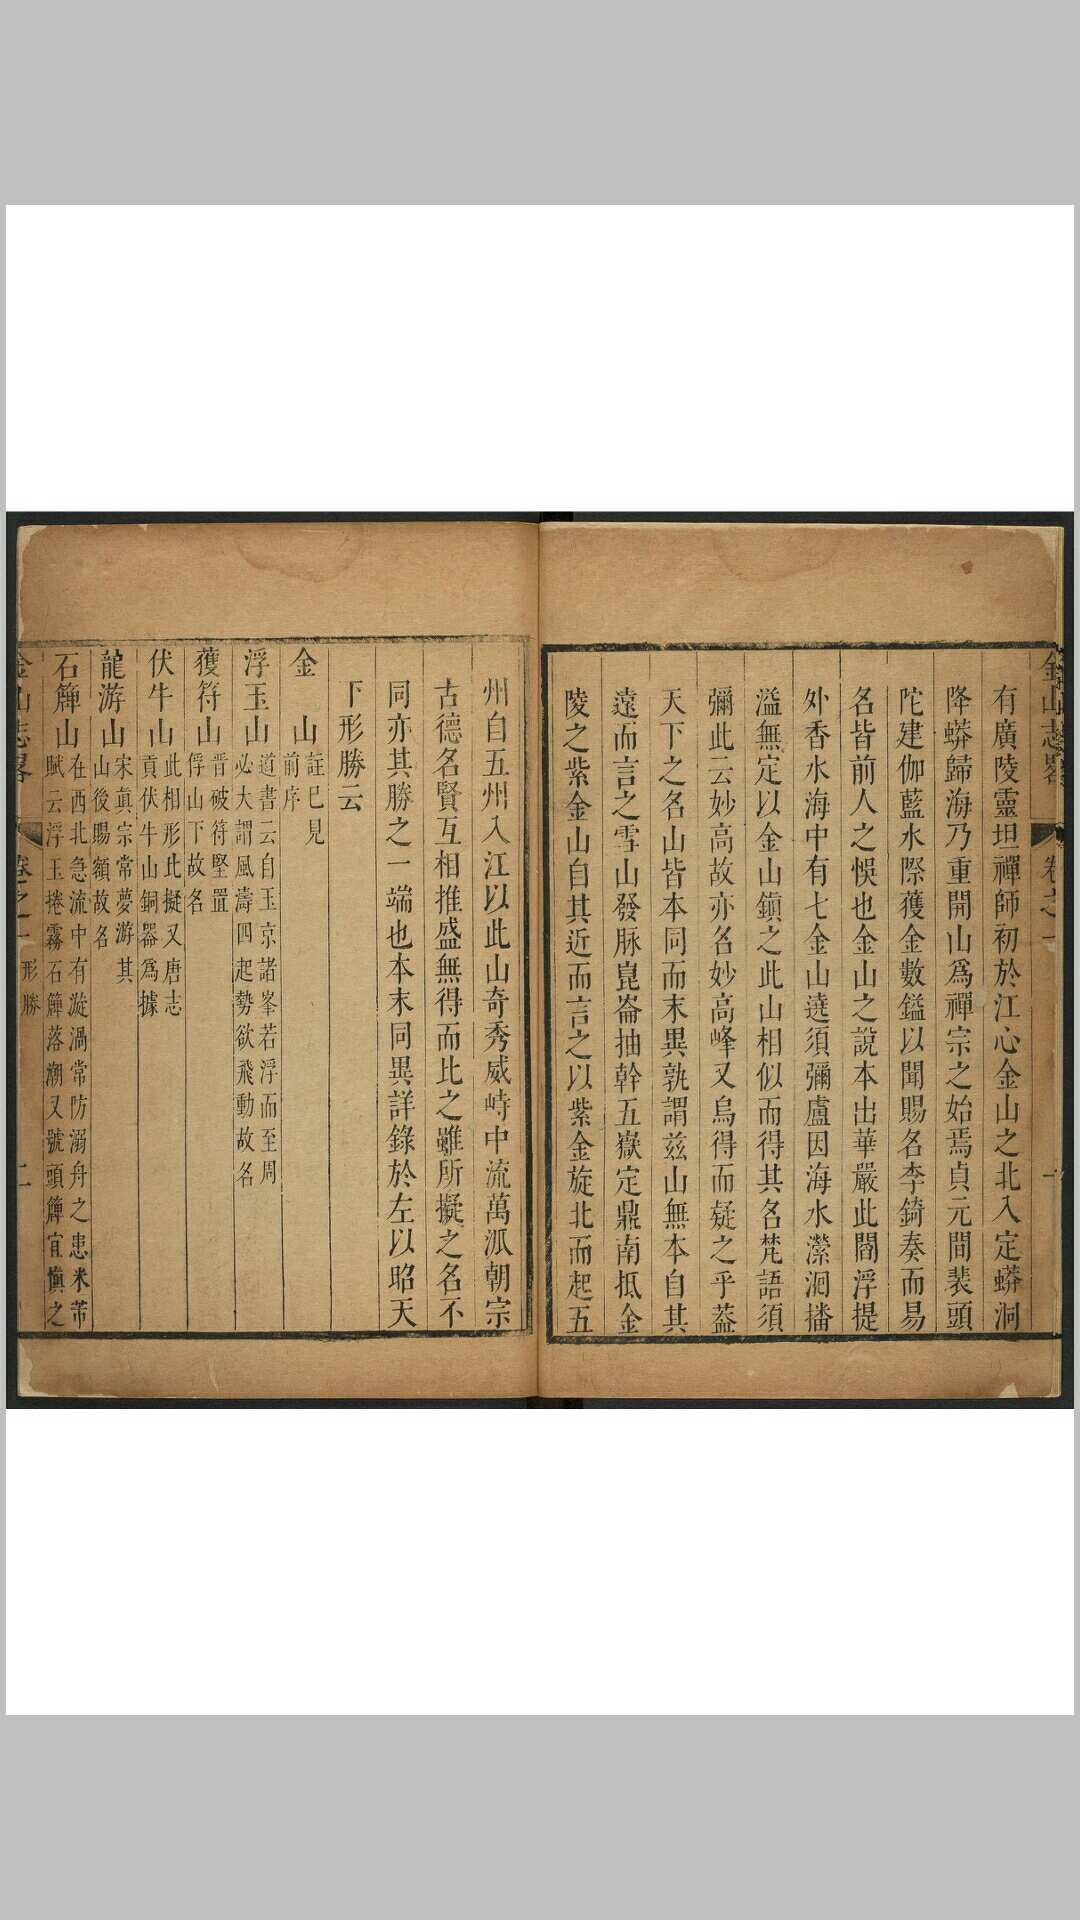 金山志畧
卷之一
一
有廣陵靈坦禪師初於江心金山之北入定蟒洞
降蟒歸海乃重開山爲禪宗之始焉貞元間裴頭
陀建伽藍水際獲金數鎰以聞賜名李錡奏而易
名皆前人之悞也金山之說本出華嚴此閻浮提
外香水海中有七金山遶須彌盧因海水瀠洄播
溢無定以金山鎮之此山相似而得其名梵語須
彌此云妙高故亦名妙高峰又烏得而疑之乎葢
天下之名山皆本同而末異孰謂兹山無本自其
遠而言之雪山發脉崑崙抽幹五嶽定鼎南抵金
陵之紫金山自其近而言之以紫金旋北而起五
州自五州入江以此山奇秀威峙中流萬派朝宗
古德名賢互相推盛無得而比之雖所擬之名不
同亦其勝之一端也本末同異詳錄於左以昭天
下形勝云
金山
註巳見
前序
浮玉山
道書云自玉京諸峯若浮而至周
必大謂風濤四起勢欲飛動故名
獲符山
晋破符堅置
俘山下故名
伏牛山
此相形此擬又唐志
貢伏牛山銅器爲據
龍游山
宋眞宗常夢游其
山後賜額故名
石簰山
在西北急流中有漩渦常防溺舟之患米芾
賦云浮玉捲霧石簰落潮又號頭簰宜慎之
金山志畧
卷之一
形勝
二